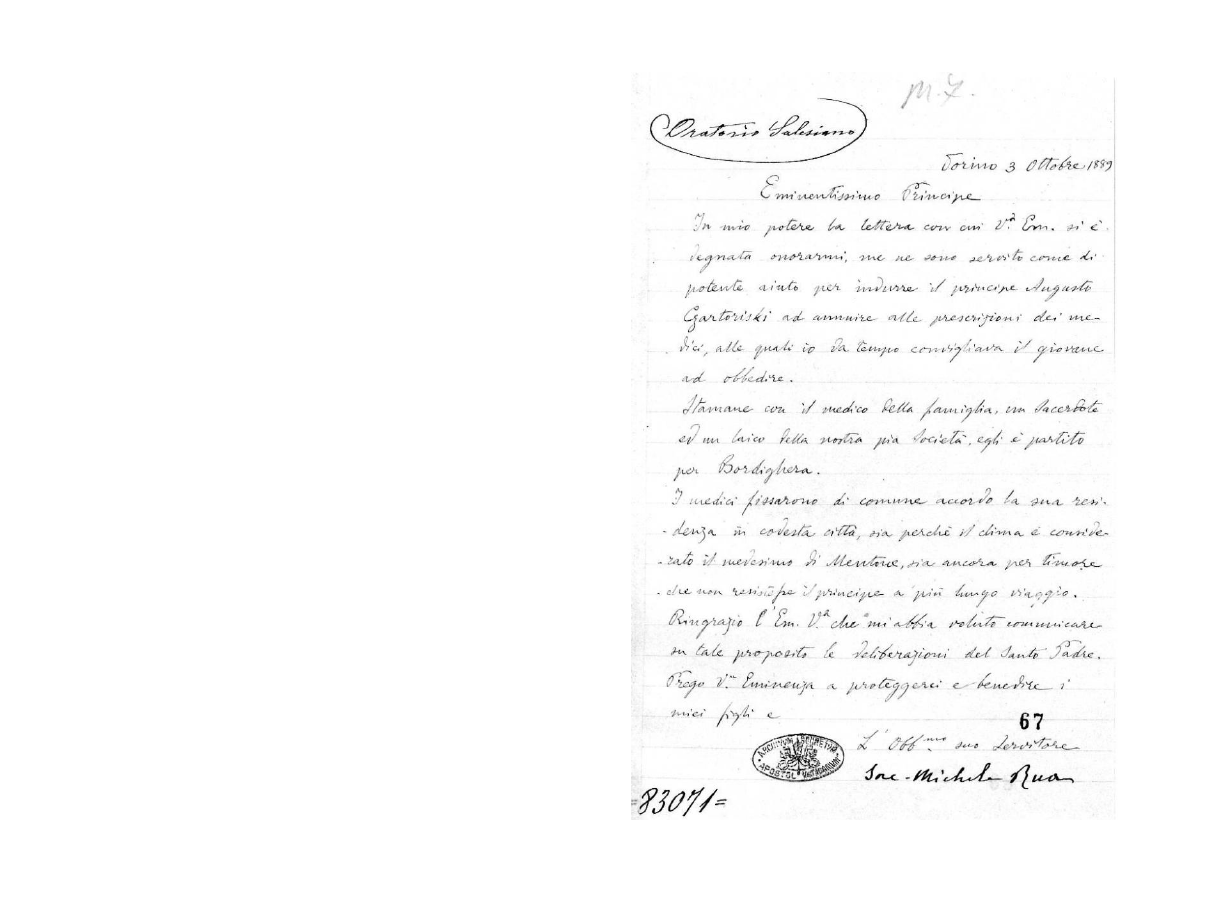 M. Z.
Oratorio Salesiano
Torino 3 Ottobre 1889
Eminentissimo Principe
In mio potere la lettera con cui V.ª Em. si è
degnata onorarmi, me ne sono servito come di
potente aiuto per indurre il principe Augusto
Czartoriski ad annuire alle prescrizioni dei me-
dici, alle quali io da tempo consigliava il giovane
ad obbedire.
Stamane con il medico della famiglia, un Sacerdote
ed un laico della nostra pia Società, egli è partito
per Bordighera.
I medici fissarono di comune accordo la sua resi-
-denza in codesta città, sia perchè il clima è conside-
-rato il medesimo di Mentone, sia ancora per timore
-che non resistesse il principe a più lungo viaggio.
Ringrazio l'Em. V.ª che mi abbia voluto communicare
su tale proposito le deliberazioni del Santo Padre.
Prego V.ª Eminenza a proteggerci e benedire i
miei figli e
67
L'Obb.mo suo Servitore
Sac. Michele Rua
ARCHIVUM SECRETUM APOSTOL. VATICANUM
=83071=